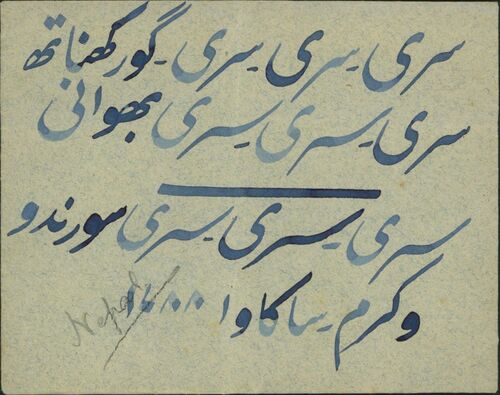 سری سری سری گورکھناتھ
سری سری سری بھوانی
سری سری سری سورندو
وکرم ساکاوا
Nepal